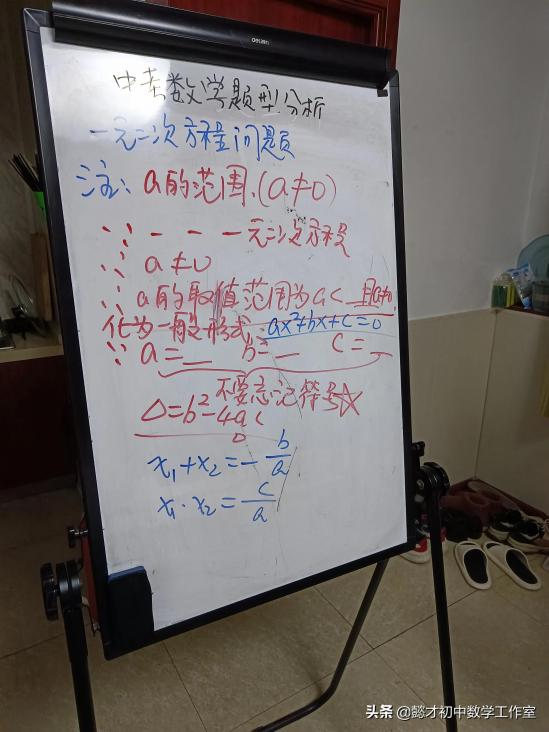 deli
中考数学题型分析
一元二次方程问题
注: a的范围.(a≠0)
∵ - - - 一元二次方程
∴ a≠0
∴ a的取值范围为a<_且a≠0
化为一般形式: ax²+bx+c=0
∵ a=_ b=_ c=_
不要忘记符号☆
Δ=b²-4ac
x₁+x₂=-b/a
x₁·x₂=c/a
头条 @懿才初中数学工作室